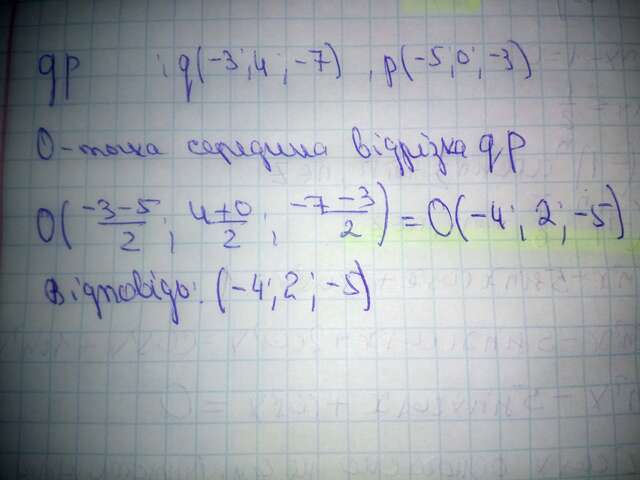 qp ; q(-3;4;-7) , p(-5;0;-3)
O-точка середина відрізка qp
O(\frac{-3-5}{2}; \frac{4+0}{2}; \frac{-7-3}{2}) = O(-4; 2; -5)
Відповідь: (-4; 2; -5)